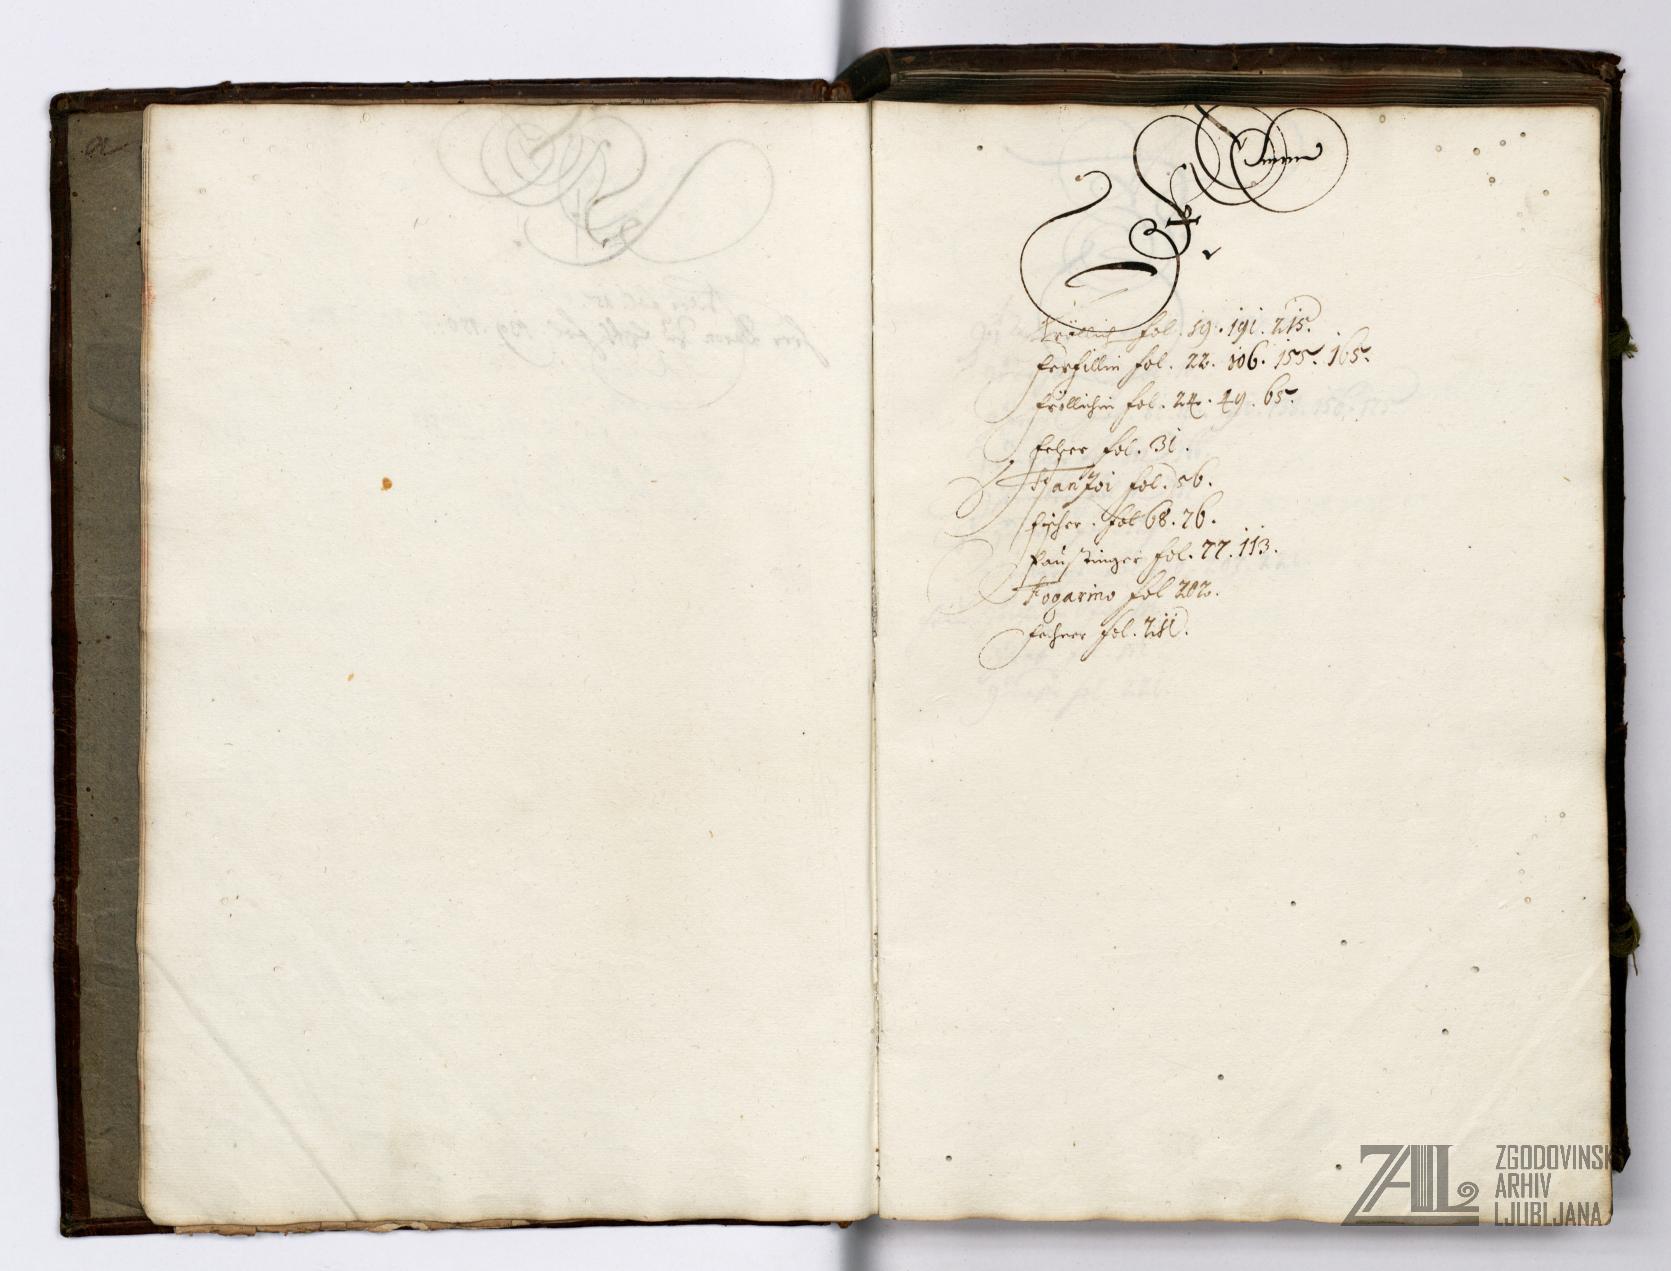 F
Fröllich fol. 19. 191. 215.
Ferfillin fol. 22. 106. 155. 165.
Fröllichin fol. 24. 49. 65.
fol. 31.
Fanzoi fol. 56.
Fischer. fol 68. 76.
Faustinger fol. 77. 113.
Fogarino fol 202.
Fechner fol. 211.
ZAL ZGODOVINSKI
ARHIV
LJUBLJANA